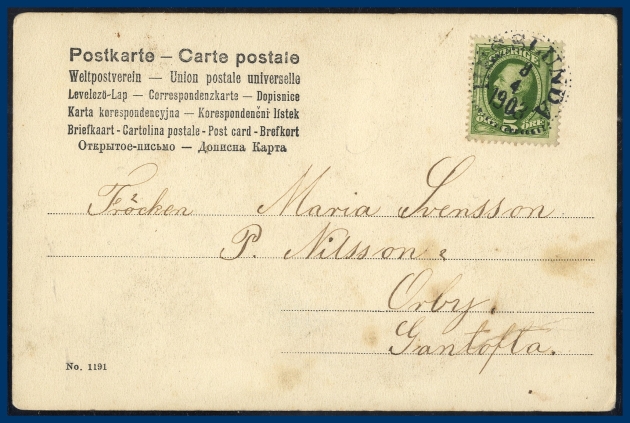 Postkarte – Carte postale
Weltpostverein — Union postale universelle
Levelező-Lap — Correspondenzkarte — Dopisnice
Karta korespondencyjna — Korespondenční lístek
Briefkaart - Cartolina postale - Post card - Brefkort
Открытое-письмо — Дописна Карта
SVERIGE
8
4
190
5 ÖRE
Fröcken Maria Svensson
P. Nilsson
Orby.
Gantofta.
No. 1191